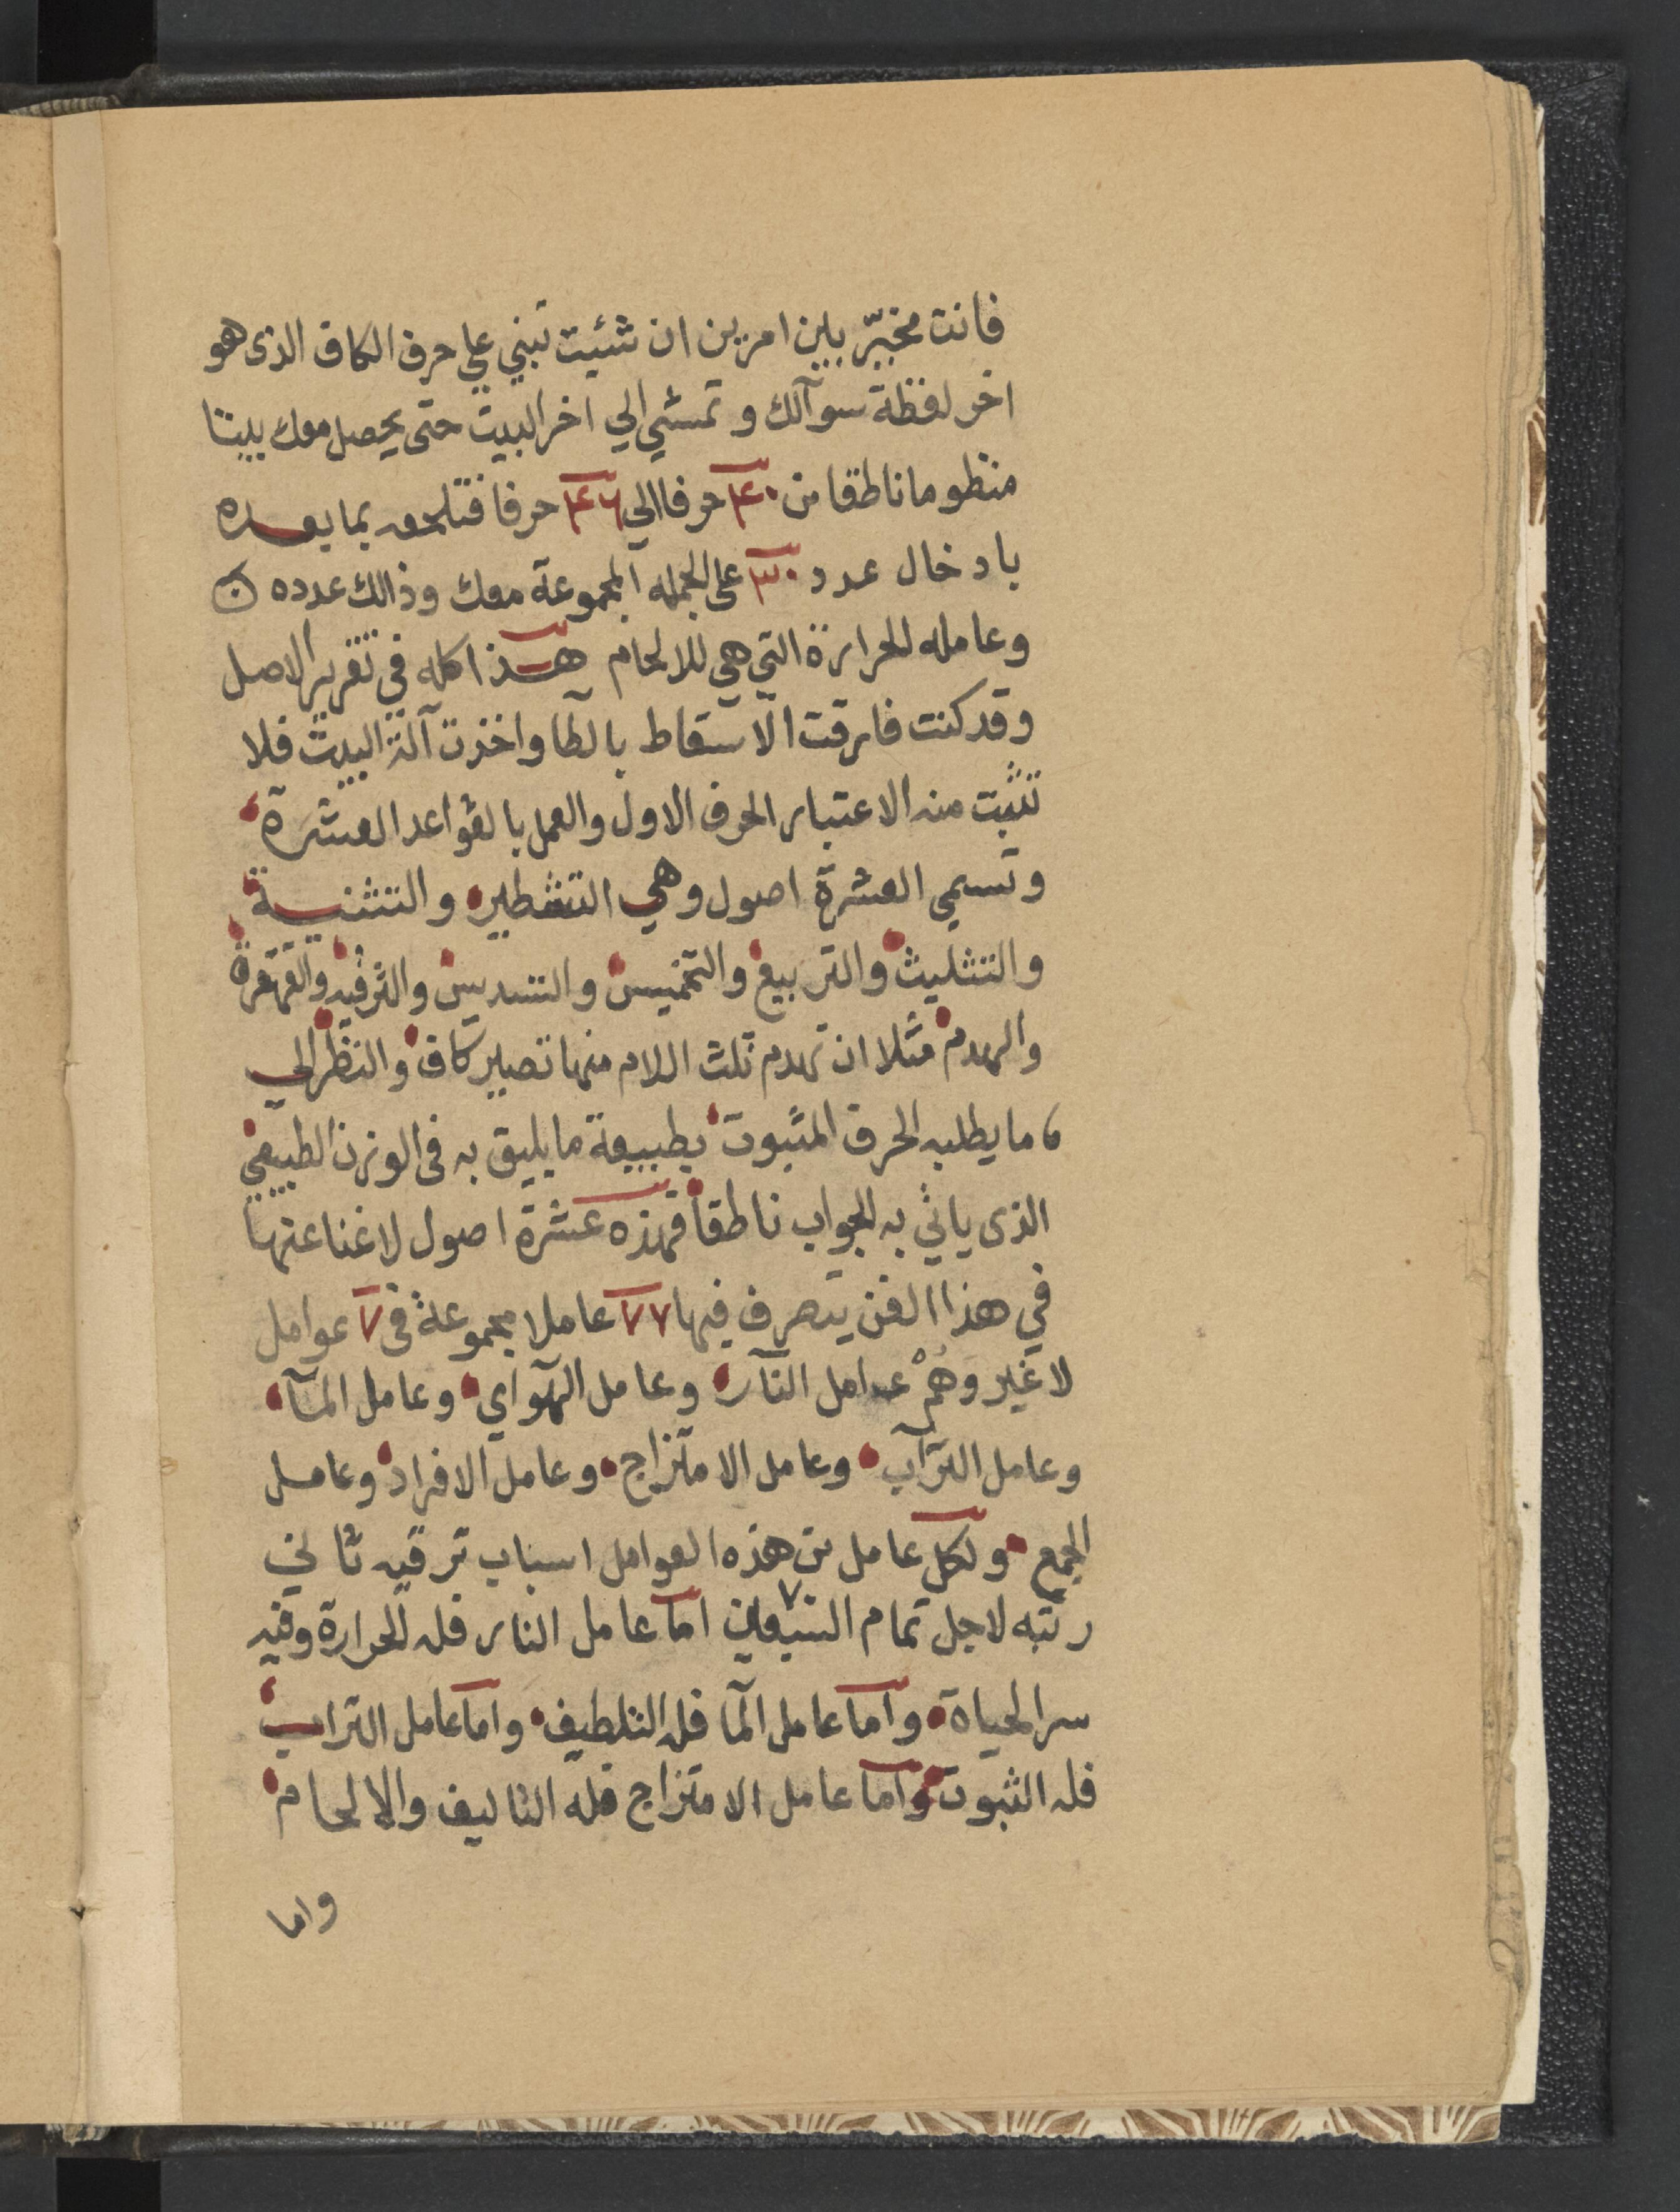 فانت مخيّر بين امرين ان شئيت تبني علي حرف الكاف الذى هو
اخر لفظة سوآلك و تمشي الي اخر البيت حتى يحصل معك بيتا
منظوما ناطقا من ٤٠ حرفا الي ٤٦ حرفا فتلحقه بما بعده
بادخال عدد ٣٠ على الجمله المجموعة معك وذالك عدده
وعامله الحرارة التي هي للالحام هذا كله في تقرير الاصل
وقد كنت فارقت الاسقاط بالطا واخذت آلة البيت فلا
تثبت منه الاعتبار الحرف الاول والعمل بالقواعد العشرة
وتسمي العشرة اصول وهي التشطير والتثنية
والتثليث والتربيع والتخميس والتسديس والترفيه والقهقرة
والهدم مثلا ان تهدم ثلث اللام منها تصير كاف والنظر الي
ما يطلبه الحرف المثبوت بطبيعة ما يليق به فى الوزن الطبيعي
الذى ياتي به الجواب ناطقا فهذه عشرة اصول لا غنا عنها
في هذا الفن يتصرف فيها ٧٧ عاملا مجموعة فى ٧ عوامل
لا غير وهُمْ عوامل النآر وعامل الهوآاي وعامل المآ
وعامل الترآب وعامل الامتزاج وعامل الافراد وعامل
الجمع ولكل عامل من هذه العوامل اسباب ترقيه ثاني
رتبه لاجل تمام السبعين ٧٠ اما عامل النار فله الحرارة وفيه
سر الحياة واما عامل المآ فله التلطيف واما عامل التراب
فله الثبوت واما عامل الامتزاج فله التاليف والالحام
واما